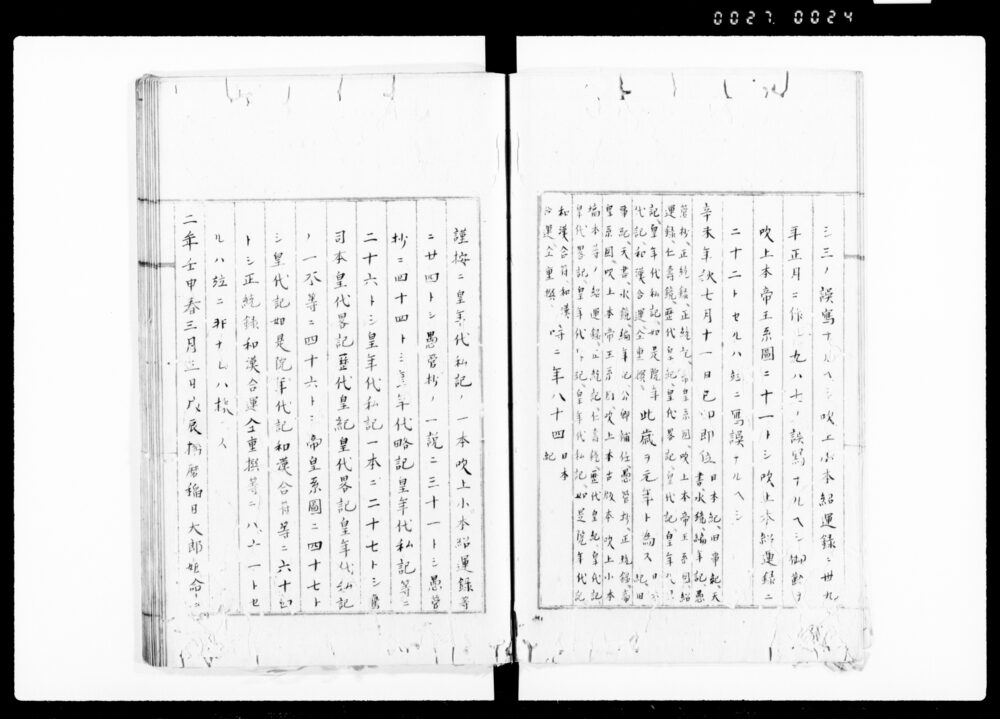 0027 0024
三三ノ誤寫ナルヘシ吹上小本紹運録ニ卅九
年正月ニ作ル九ハ七ノ誤寫ナルヘシ御歡ヲ
吹上本帝王系圖ニ十一トシ吹上本紹運録ニ
二十二トセルハ竝ニ寫誤ナルヘシ
辛未年秋七月十一日己卯即位 日本紀、舊事紀、天
書、水鏡、編年記、愚
管抄、正統録、正統記、帝皇系圖、吹上本帝王系圖、紹
運録、仁壽鏡、歴代皇紀、皇代畧記、皇代記、皇年代
記、皇年代私記、如是院年
代記、和漢合運、仝重撰、 此歳ヲ元年ト爲ス 日本
紀、旧
事紀、天書、水鏡、編年記、公卿補任、愚管抄、正統録、帝
皇系圖、吹上本帝王系圖、吹上本古版本吹上小本
塙本等ノ紹運録、正統記、仁壽鏡、歴代皇紀、皇代記、
皇代畧記、皇年代 記、皇年代私記、如是院年代記、
和漢合符、和漢
合運、仝重撰、 時ニ年八十四 日本
紀
謹按ニ皇年代私記ノ一本吹上小本紹運録等
ニ廿四トシ愚管抄ノ一説ニ三十一トシ愚管
抄ニ四十四トシ 年代略記皇年代私記等ニ
二十六トシ皇年代私記一本ニ二十七トシ
司本皇代畧記歴代皇紀皇代畧記皇年代私記
ノ一本等ニ四十六トシ帝皇系圖ニ四十七ト
シ皇代記如是院年代記和漢合符等ニ六十四
トシ正統録和漢合運仝重撰等ニ八十一トセ
ルハ竝ニ非ナルハ
二年壬申春三月 日戊辰播磨稲日大郎姫命